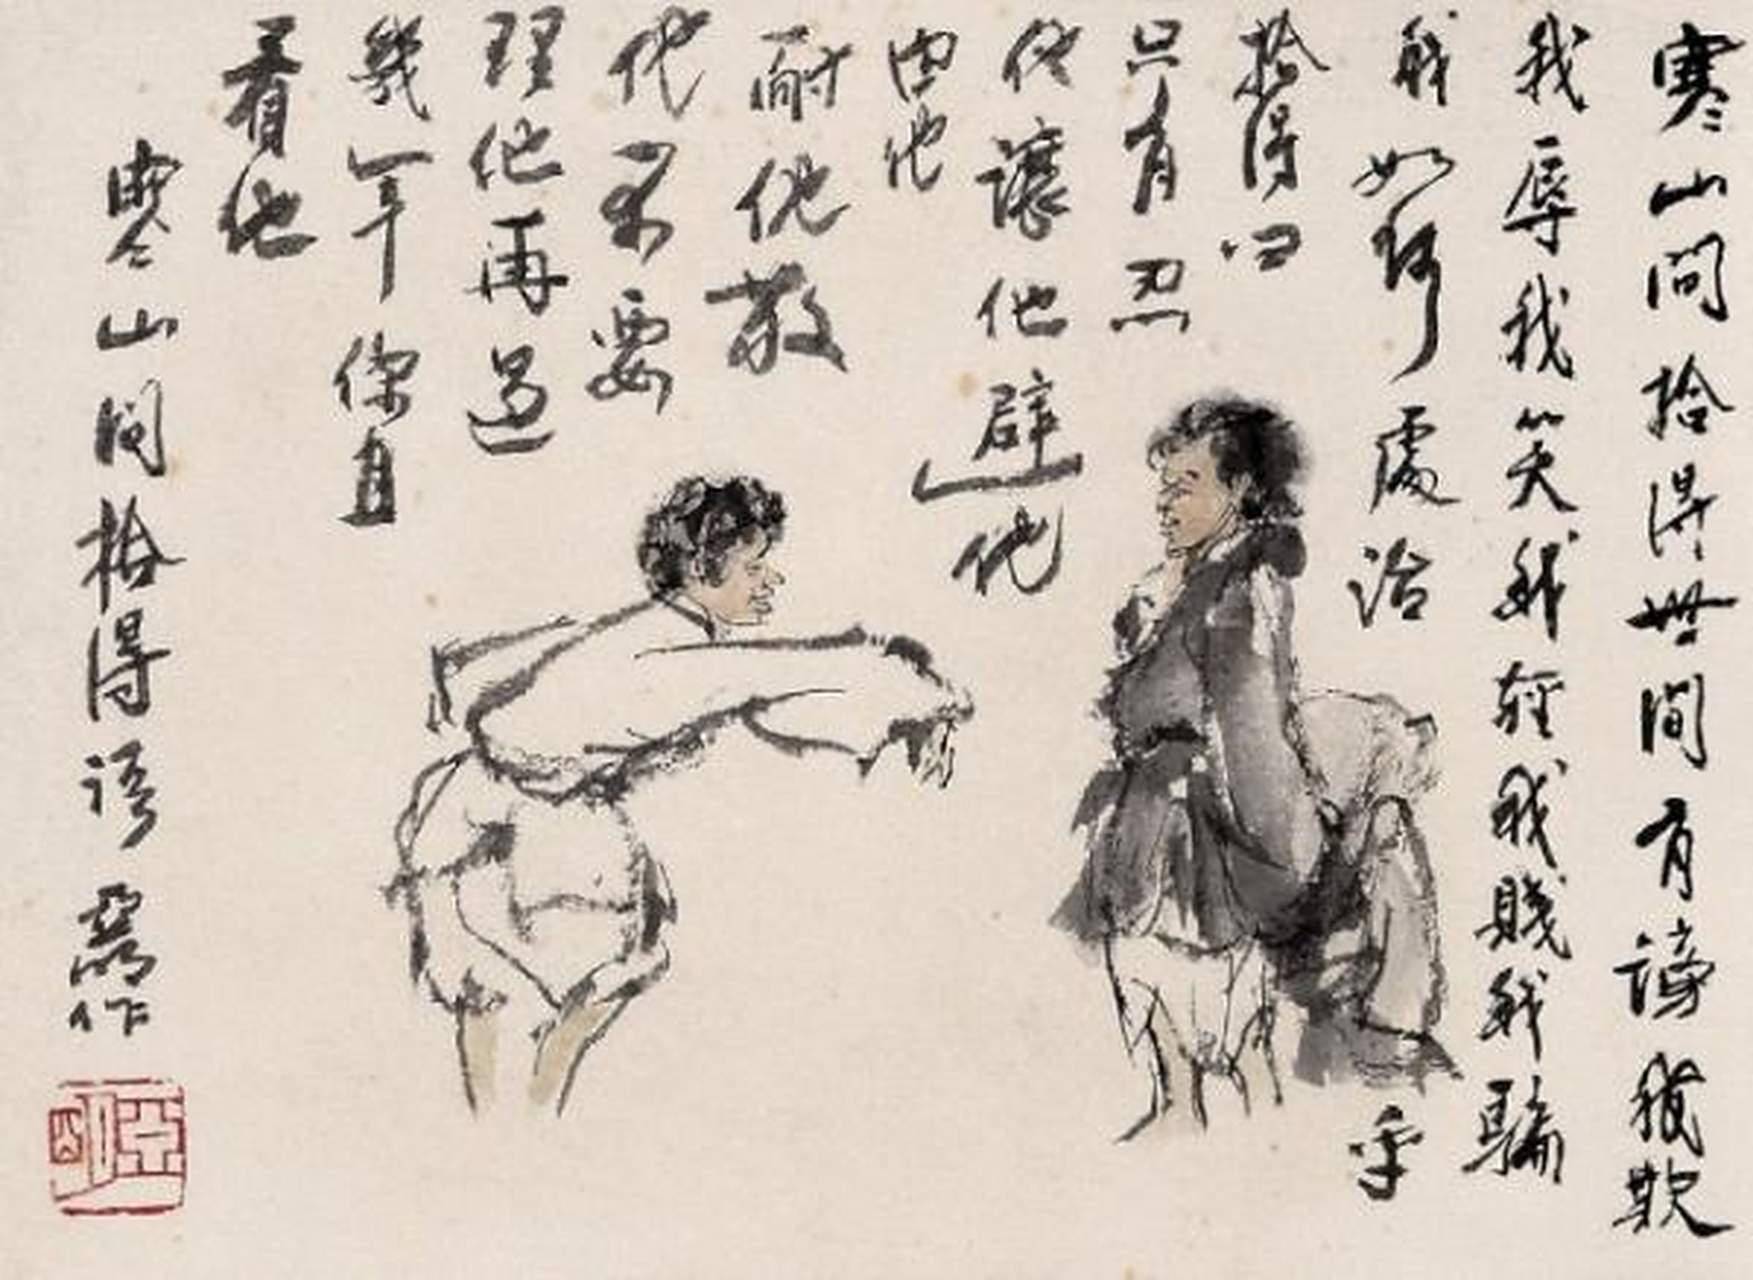 寒山問拾得世間有謗我欺
我辱我笑我輕我賤我騙
我如何處治乎
拾得曰
只有忍
他讓他避他
由他
耐他敬
他不要
理他再過
幾年你且
看他
寒山問拾得語 亞明作
亞明